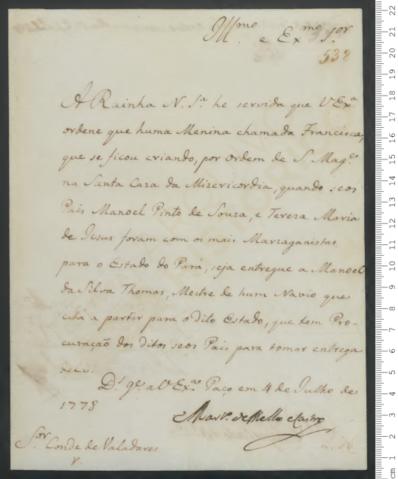 Ill.mo e Ex.mo S.or
538
A Rainha N. S.ra he servida que V. Ex.a
ordene que huma Menina chamada Francisca,
que se ficou criando, por ordem de S. Mag.e
na Santa Caza da Mizericordia, quando seos
Pais Manoel Pinto de Souza, e Tereza Maria
de Jesus foram com os mais Mazaganistas
para o Estado do Pará, seja entregue a Manoel
da Silva Thomas, Mestre de hum Navio que
está a partir para o dito Estado, que tem Pro-
curação dos ditos seos Pais para tomar entrega
D.s g.e a V. Ex.a Paço em 4 de Julho de
1778
Mart.o de Mello e Castro
S.or Conde de Valadares